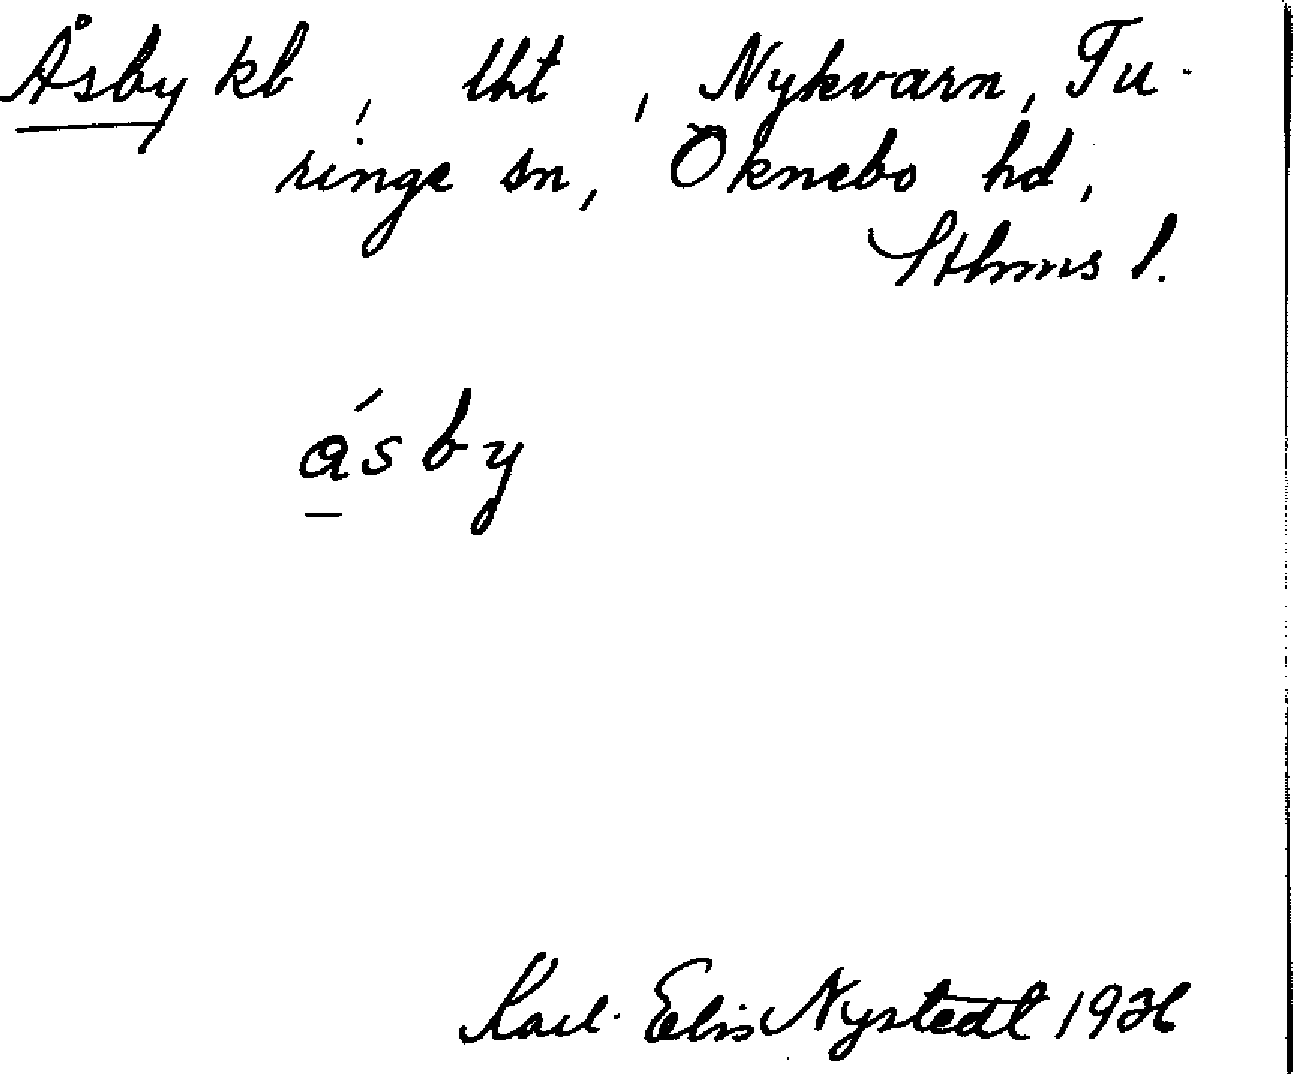 Åsby kb, lht, Nykvarn, Tu-
ringe sn, Öknebo hd,
Sthms l.
a̠´sby
Karl-Elis Nystedt 1936